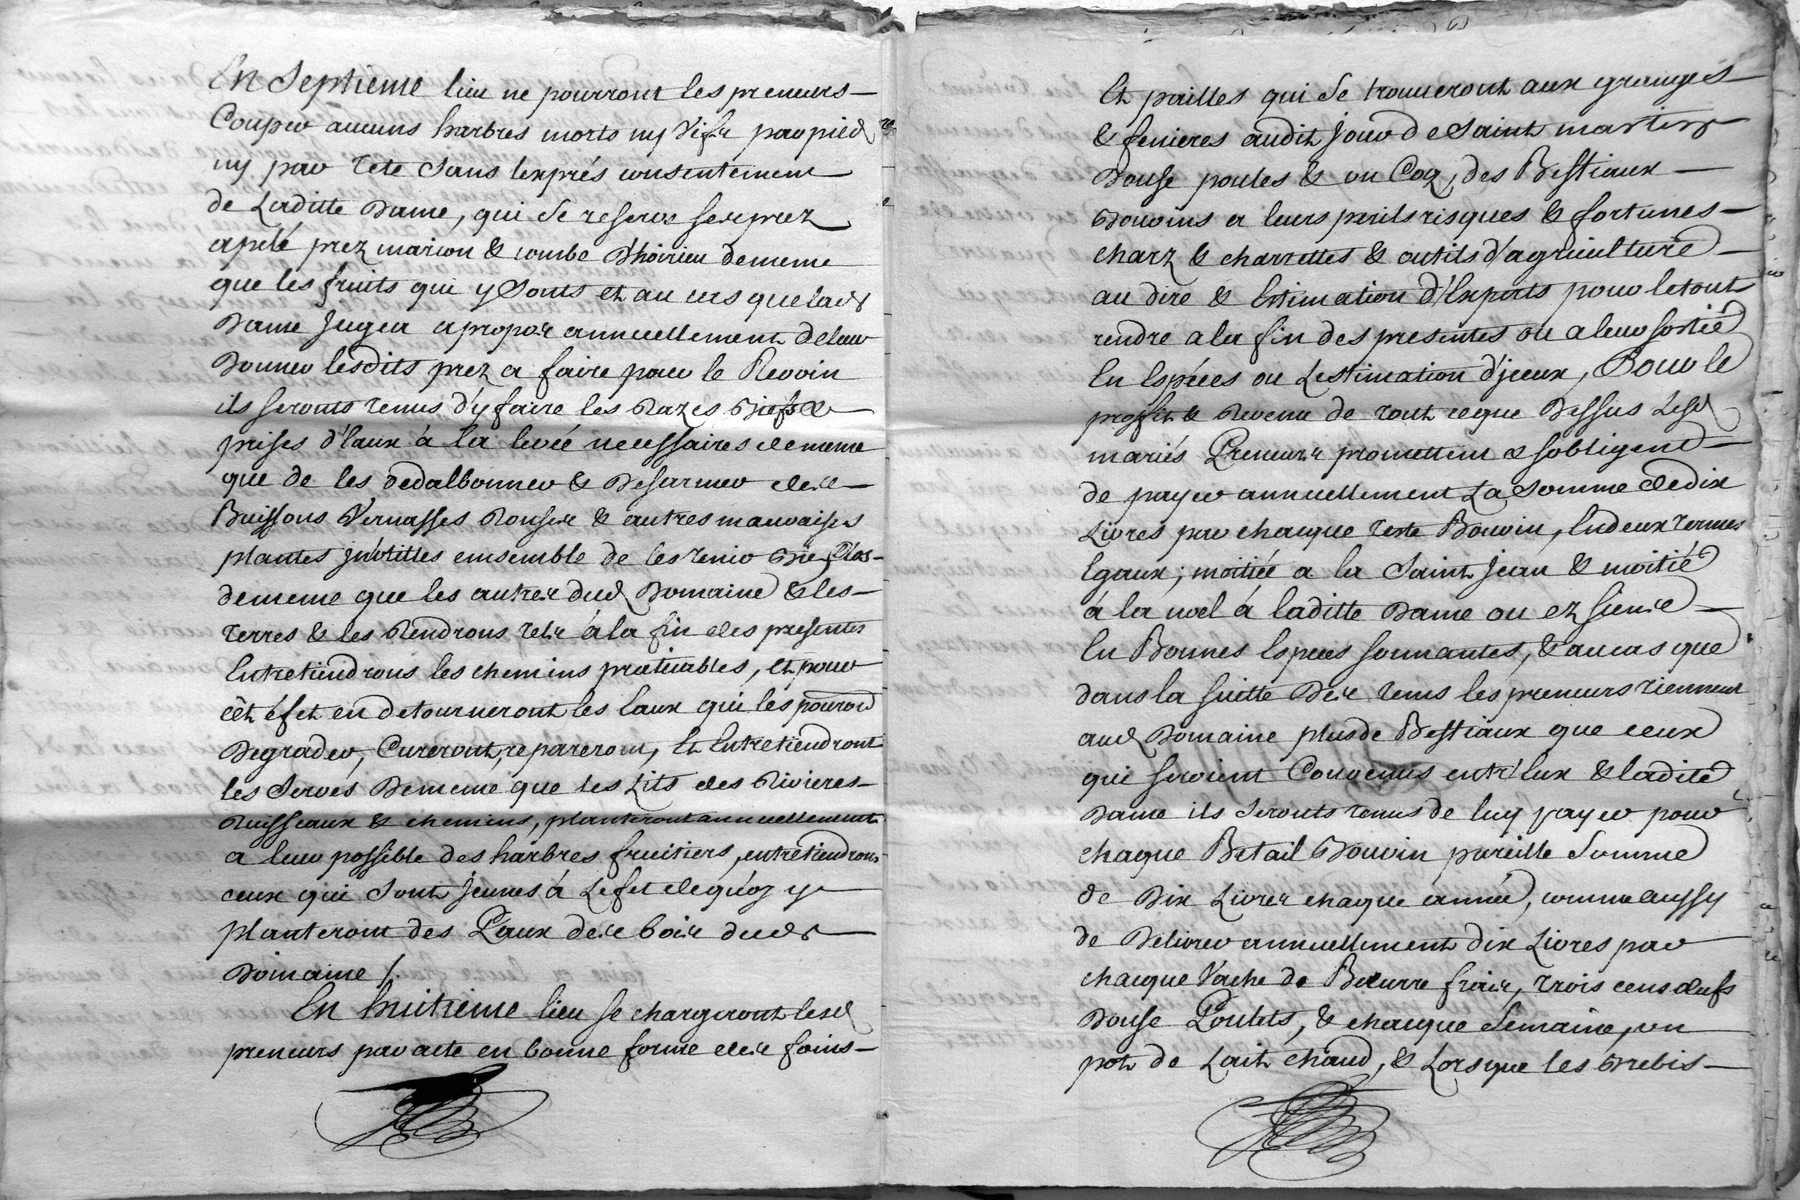 En Septieme lieu ne pourront les preneurs
Couper aucuns harbres morts ny vifs par pied
ny par tete Sans lexprés consentement
de Laditte Dame, qui se reserve ses prez
apelé prez marion & combe Dhoirieu dememe
que les fruits qui y Sonts et au cas que lad
Dame Jugea apropos annuellement de leur
Donner lesdits prez a faire pour le Revoin
ils seronts tenus d'y faire les Razes Biefs &
prises d'Eaux à la levée necessaires de meme
que de les dedalbonner & Desarmer des
Buissons Vernasses Ronses & autres mauvaises
plantes jnutilles ensemble de les tenir Bie Clos
dememe que les autres dud Domaine & les
terres & les Rendrons tels à la fin des presentes
Entretiendrons les chemins pratiquables, et pour
cét éfet en detourneront les Eaux qui les pouroit
Degrader, Cureront, repareront, et Entretiendront
les Serves Dememe que les Lits des Rivieres
Ruisseaux & chemins, planteront annuellement
a leur possible des harbres fruitiers, entretiendrons
ceux qui Sont Jeunes à Lefet dequoy y
planteront des Paux des bois dud
Domaine /.
En huitieme lieu se chargeront lesd
preneurs par acte en bonne forme des foins
Et pailles qui se trouveront aux granges
& fenieres audit jour de Saint martin
Douse poules & un Coq, des Bestiaux
Bovins a leurs perils risques & fortunes
charz & charrettes & outils d'agriculture
au dire & Estimation d'Experts pour le tout
rendre a la fin des presentes ou a leur sortie
En Espéces ou Lestimation d'jceux, Pour le
proffit & Revenu de tout ceque Dessus Lesd
mariés Preneurs promettent & sobligent
de payer annuellement La Somme de dix
Livres par chaque teste Bovin, En deux termes
Egaux; moitiée a la Saint Jean & moitié
à la noel à laditte Dame ou ez siens
En Bonnes Especes sonnantes, & au cas que
dans la suitte Des tems les preneurs tiennent
aud Domaine plus de Bestiaux que ceux
qui seroient Convenus entr'Eux & ladite
Dame ils Seronts tenus de luy payer pour
chaque Betail Bouvin pareille Somme
de Dix Livres chaque année, comme aussy
de Delivrer annuellement dix Livres par
chaque Vache de Beurre frais, trois cens œufs
Douse Poulets, & chaque Semaine, un
pot de Lait chaud, & Lorsque les Brebis